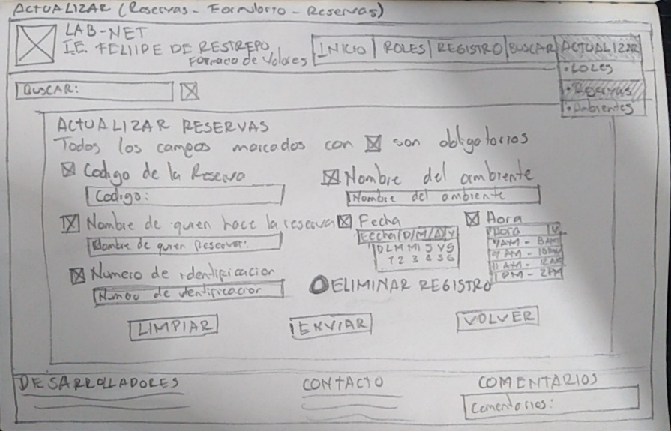 ACTUALIZAR (Reservas - Formulario - Reservas)
LAB-NET
I.E. FELIPE DE RESTREPO
Formaco de Valores
INICIO ROLES REGISTRO BUSCAR ACTUALIZAR
• LOLES
• Reservas
• Ambientes
BUSCAR:
ACTUALIZAR RESERVAS
Todos los campos marcados con son obligatorios
Codigo de la Reserva
Codigo:
Nombre del ambiente
Nombre del ambiente
Nombre de quien hace la reserva
Nombre de quien Reserva:
Fecha
Fecha D/M/A
D L M M J V S
1 2 3 4 5 6
Hora
Hora
7AM - 8AM
9AM - 10AM
11AM - 12AM
1PM - 2PM
Numero de identificacion
Numero de identificacion
ELIMINAR REGISTRO
LIMPIAR
ENVIAR
VOLVER
DESARROLLADORES
CONTACTO
COMENTARIOS
Comentarios: